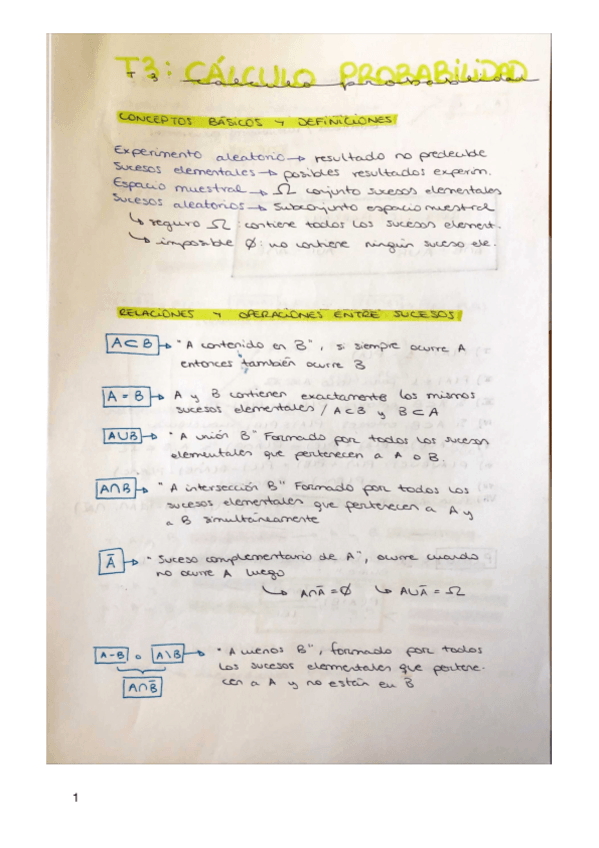 T3: CÁLCULO PROBABILIDAD
T 3 cálculo probabilidad
CONCEPTOS BÁSICOS Y DEFINICIONES
Experimento aleatorio → resultado no predecible
Sucesos elementales → posibles resultados experim.
Espacio muestral → Ω conjunto sucesos elementales
Sucesos aleatorios → Subconjunto espacio muestral
↳ seguro Ω: contiene todos los sucesos element.
↳ imposible ∅: no contiene ningún suceso ele.
RELACIONES Y OPERACIONES ENTRE SUCESOS
A⊂B → "A contenido en B", si siempre ocurre A
entonces también ocurre B
A = B → A y B contienen exactamente los mismos
sucesos elementales / A⊂B y B⊂A
A∪B → "A unión B" Formado por todos los sucesos
elementales que pertenecen a A o B.
A∩B → "A intersección B" Formado por todos los
sucesos elementales que pertenecen a A y
a B simultáneamente
Ā → "Suceso complementario de A", ocurre cuando
no ocurre A luego
↳ A∩Ā = ∅ ↳ A∪Ā = Ω
A-B o A\B → "A menos B", formado por todos
los sucesos elementales que pertene-
cen a A y no están en B
A∩B̄
1